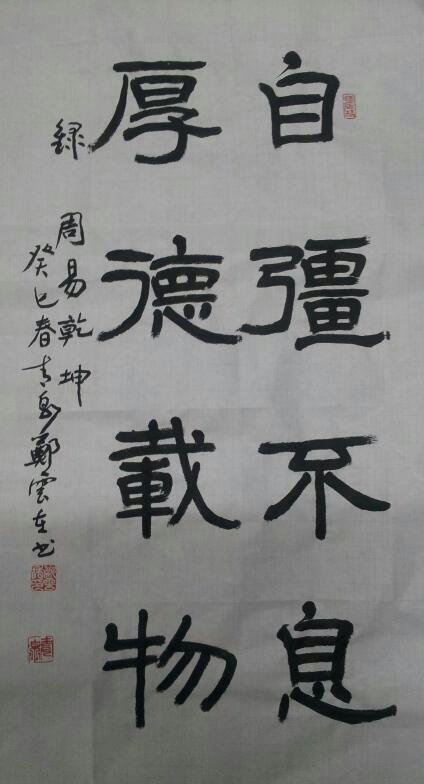 自彊不息
厚德載物
録周易乾坤
癸巳春青島鄭雲在书